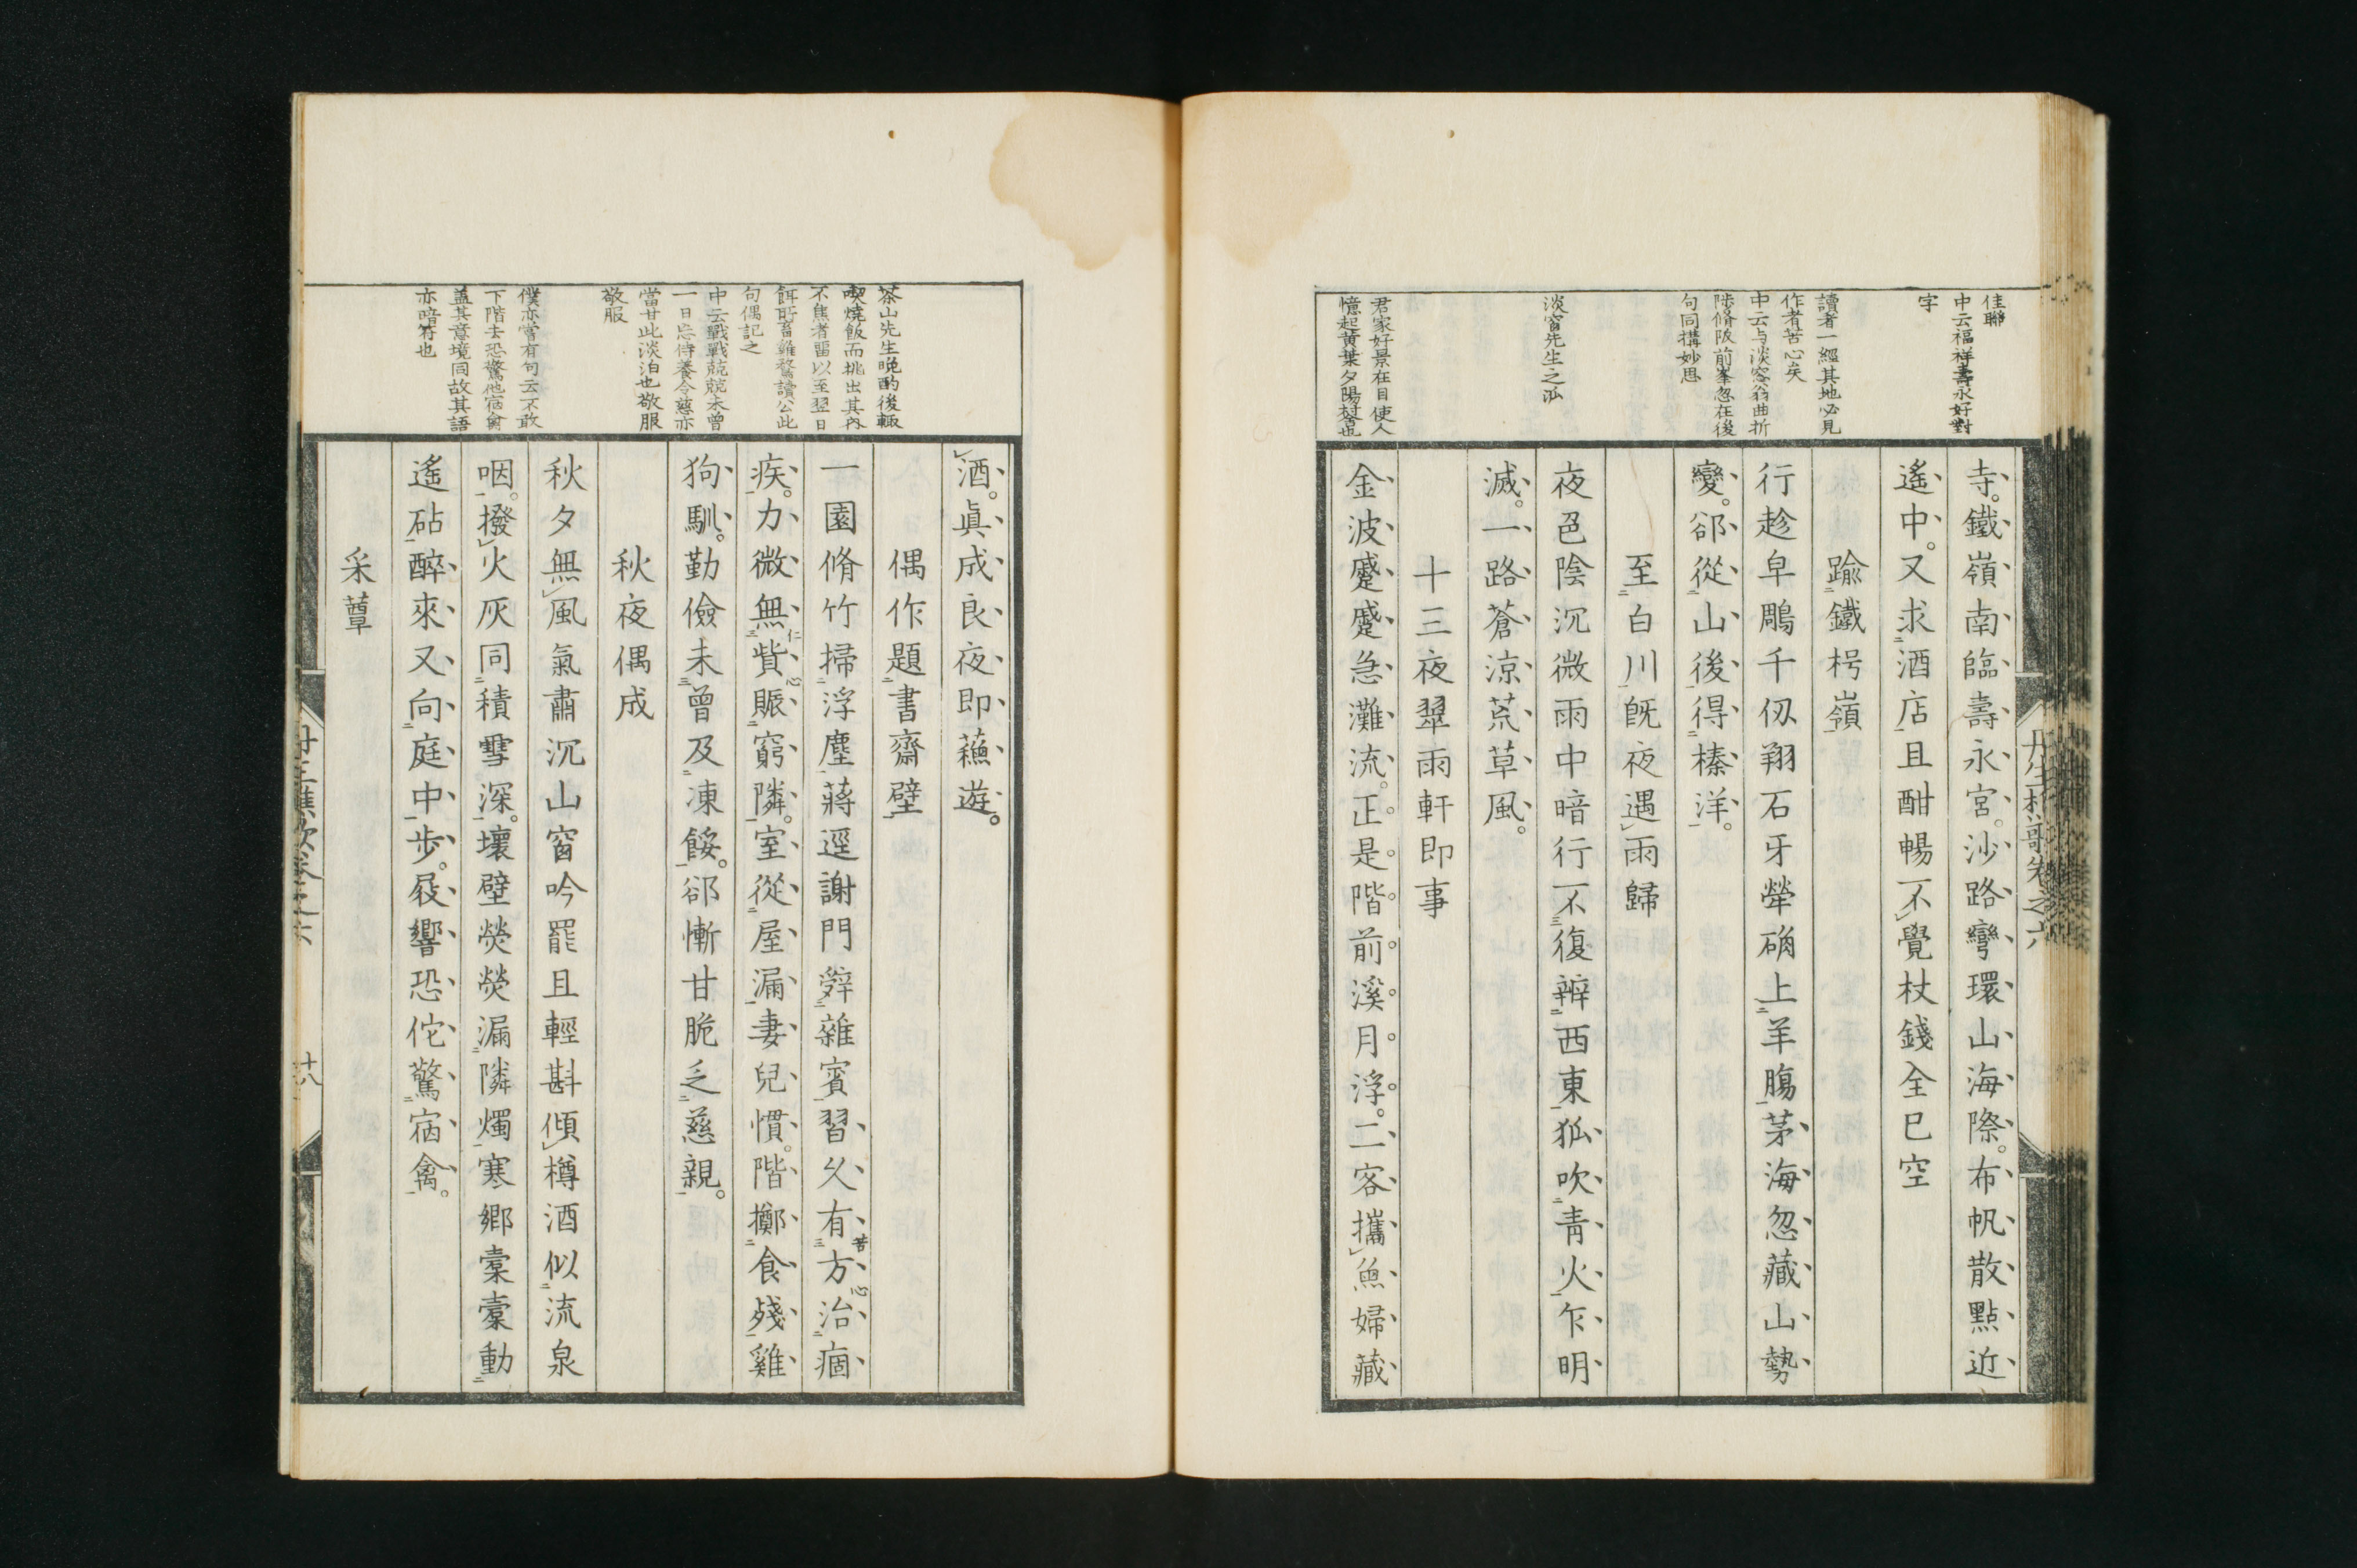 佳聯
中云福祥壽永好對
字
讀者一經其地必見
作者苦心矣
中云与淡窓翁曲折
陟脩阪前峯忽在後
句同構妙思
淡窗先生之派
君家好景在目使人
憶起黄葉夕陽村舎也
寺鐵嶺南臨壽永宮沙路彎環山海際布帆散點近
遙中又求酒店且酣暢不覺杖錢全已空
踰鐵枵嶺
行趁皁鵰千仭翔石牙犖确上羊膓茅海忽藏山勢
變郤從山後得榛洋
至白川既夜遇雨歸
夜色陰沉微雨中暗行不復辨西東狐吹靑火乍明
滅一路蒼涼荒草風
十三夜翠雨軒即事
金波蹙蹙急灘流正是階前溪月浮二客攜魚婦藏
丹生樵歌卷之六
茶山先生晩酌後輙
喫燒飯而挑出其內
不焦者畱以至翌日
餌所畜雞鶩讀公此
句偶記之
中云戰戰兢兢未曾
一日忘侍養今慈亦
當甘此淡泊也敬服
敬服
僕亦嘗有句云不敢
下階去恐驚他宿禽
盖其意境同故其語
亦暗符也
酒眞成良夜即蘓遊
偶作題書齋壁
一園脩竹掃浮塵蔣逕謝門辭雜賓習久有方治痼
苦心
疾力微無貲賑窮隣室從屋漏妻兒慣階擲食殘雞
仁心
狗馴勤儉未曾及凍餒郤慚甘脆乏慈親
秋夜偶成
秋夕無風氣肅沉山窗吟罷且輕斟傾樽酒似流泉
咽撥火灰同積雪深壞壁熒熒漏隣燭寒鄉橐橐動
遙砧醉來又向庭中步屐響恐佗驚宿禽
采蕈
丹生樵歌卷之六
十八